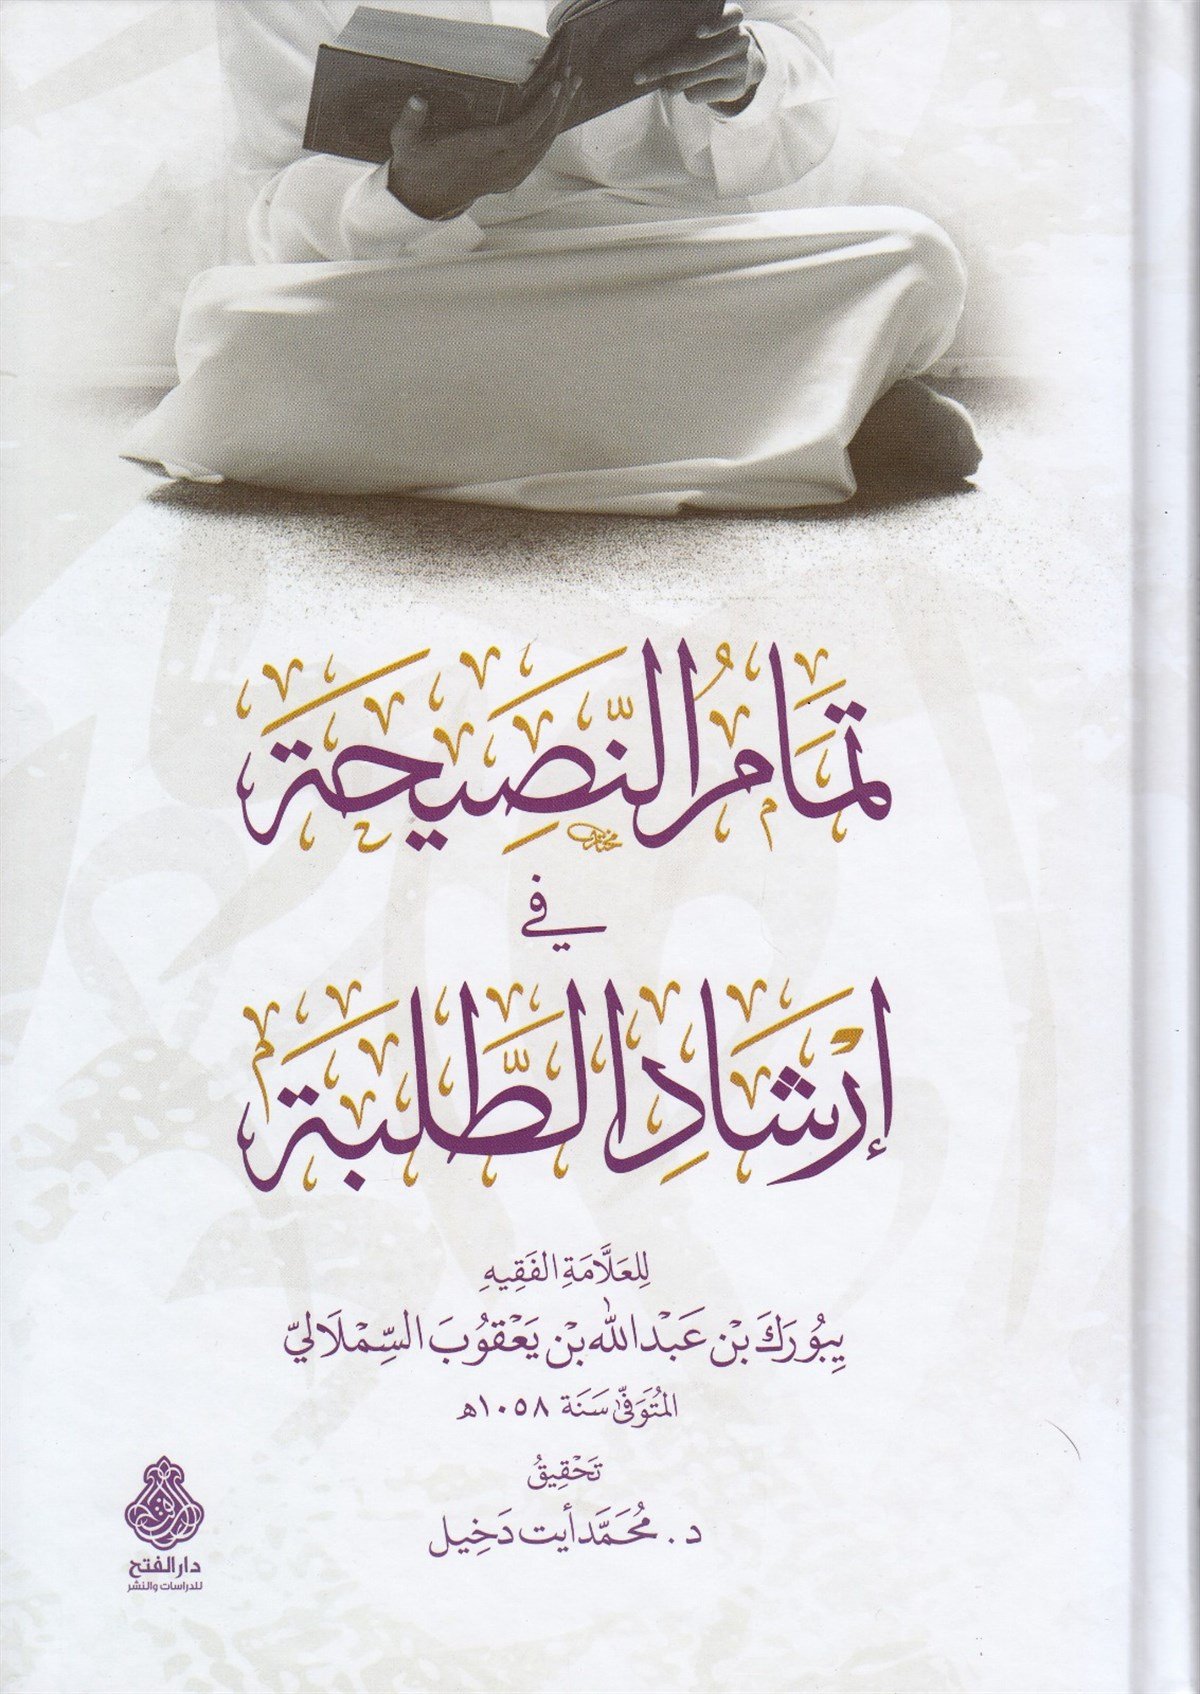 تَمَامُ النَّصِيحَةِ
في
إرْشَادِ الطَّلَبَةِ
لِلعَلَّامَةِ الفَقِيهِ
يبُورَكَ بْنِ عَبْدِ اللهِ بْنِ يَعْقُوبَ السِّمْلَاليّ
المُتَوَفَّى سَنَة ١٠٥٨هـ
تَحْقِيقُ
د. مُحَمَّد أيت دَخِيل
دار الفتح
للدراسات والنشر